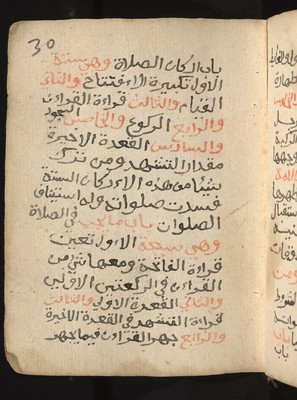 30
باب اركان الصلاة وهي ستة
الاول تكبيرة الافتتاح والثاني
القيام والثالث قراءة القران
والرابع الركوع والخامس السجود
والسادس القعدة الاخيرة
مقدار التشهد ومن ترك
شيئا من هذه الاركان الستة
فسدت صلواته وله استيناف
الصلوات باب ما يجب في الصلاة
وهي سبعة الاول تعين
قراءة الفاتحة ومعها شي من
القران في الركعتين الاوليين
والثاني القعدة الاولى والثالث
قراءة التشهد في القعدة الاخيرة
والرابع جهر القران فيما يجهر